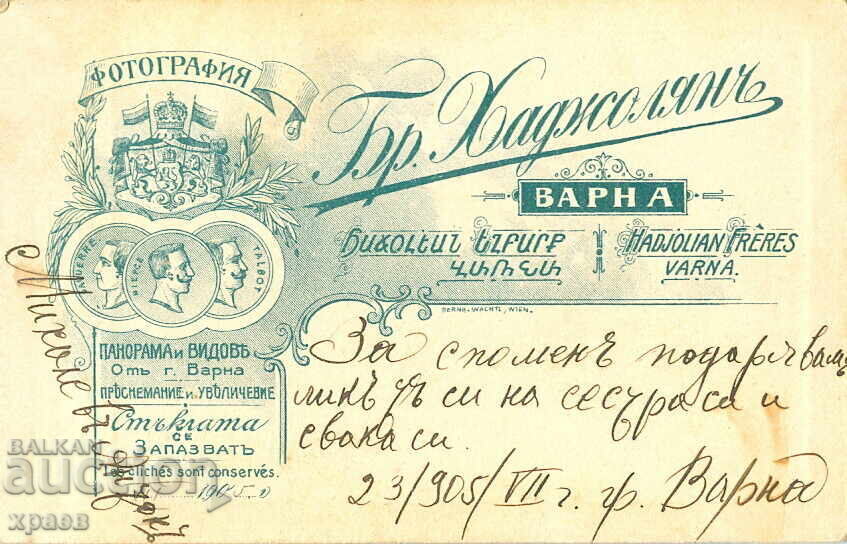 ФОТОГРАФИЯ
Бр. Хаджолянъ
ВАРНА
HADJOLIAN FRÈRES
VARNA.
NIEPCE
TALBOT
BERNH. WACHTL, WIEN.
ПАНОРАМА и ВИДОВѢ
Отъ г. Варна
ПРѢСНЕМАНИЕ и УВѢЛИЧЕНИЕ
Стъклата
СЕ
ЗАПАЗВАТЪ
Les clichés sont conservés.
190
За споменъ подарявамъ
ликътъ си на сестра си и
свака си.
23/905/VII г. гр. Варна
BALKAN
auction
храов